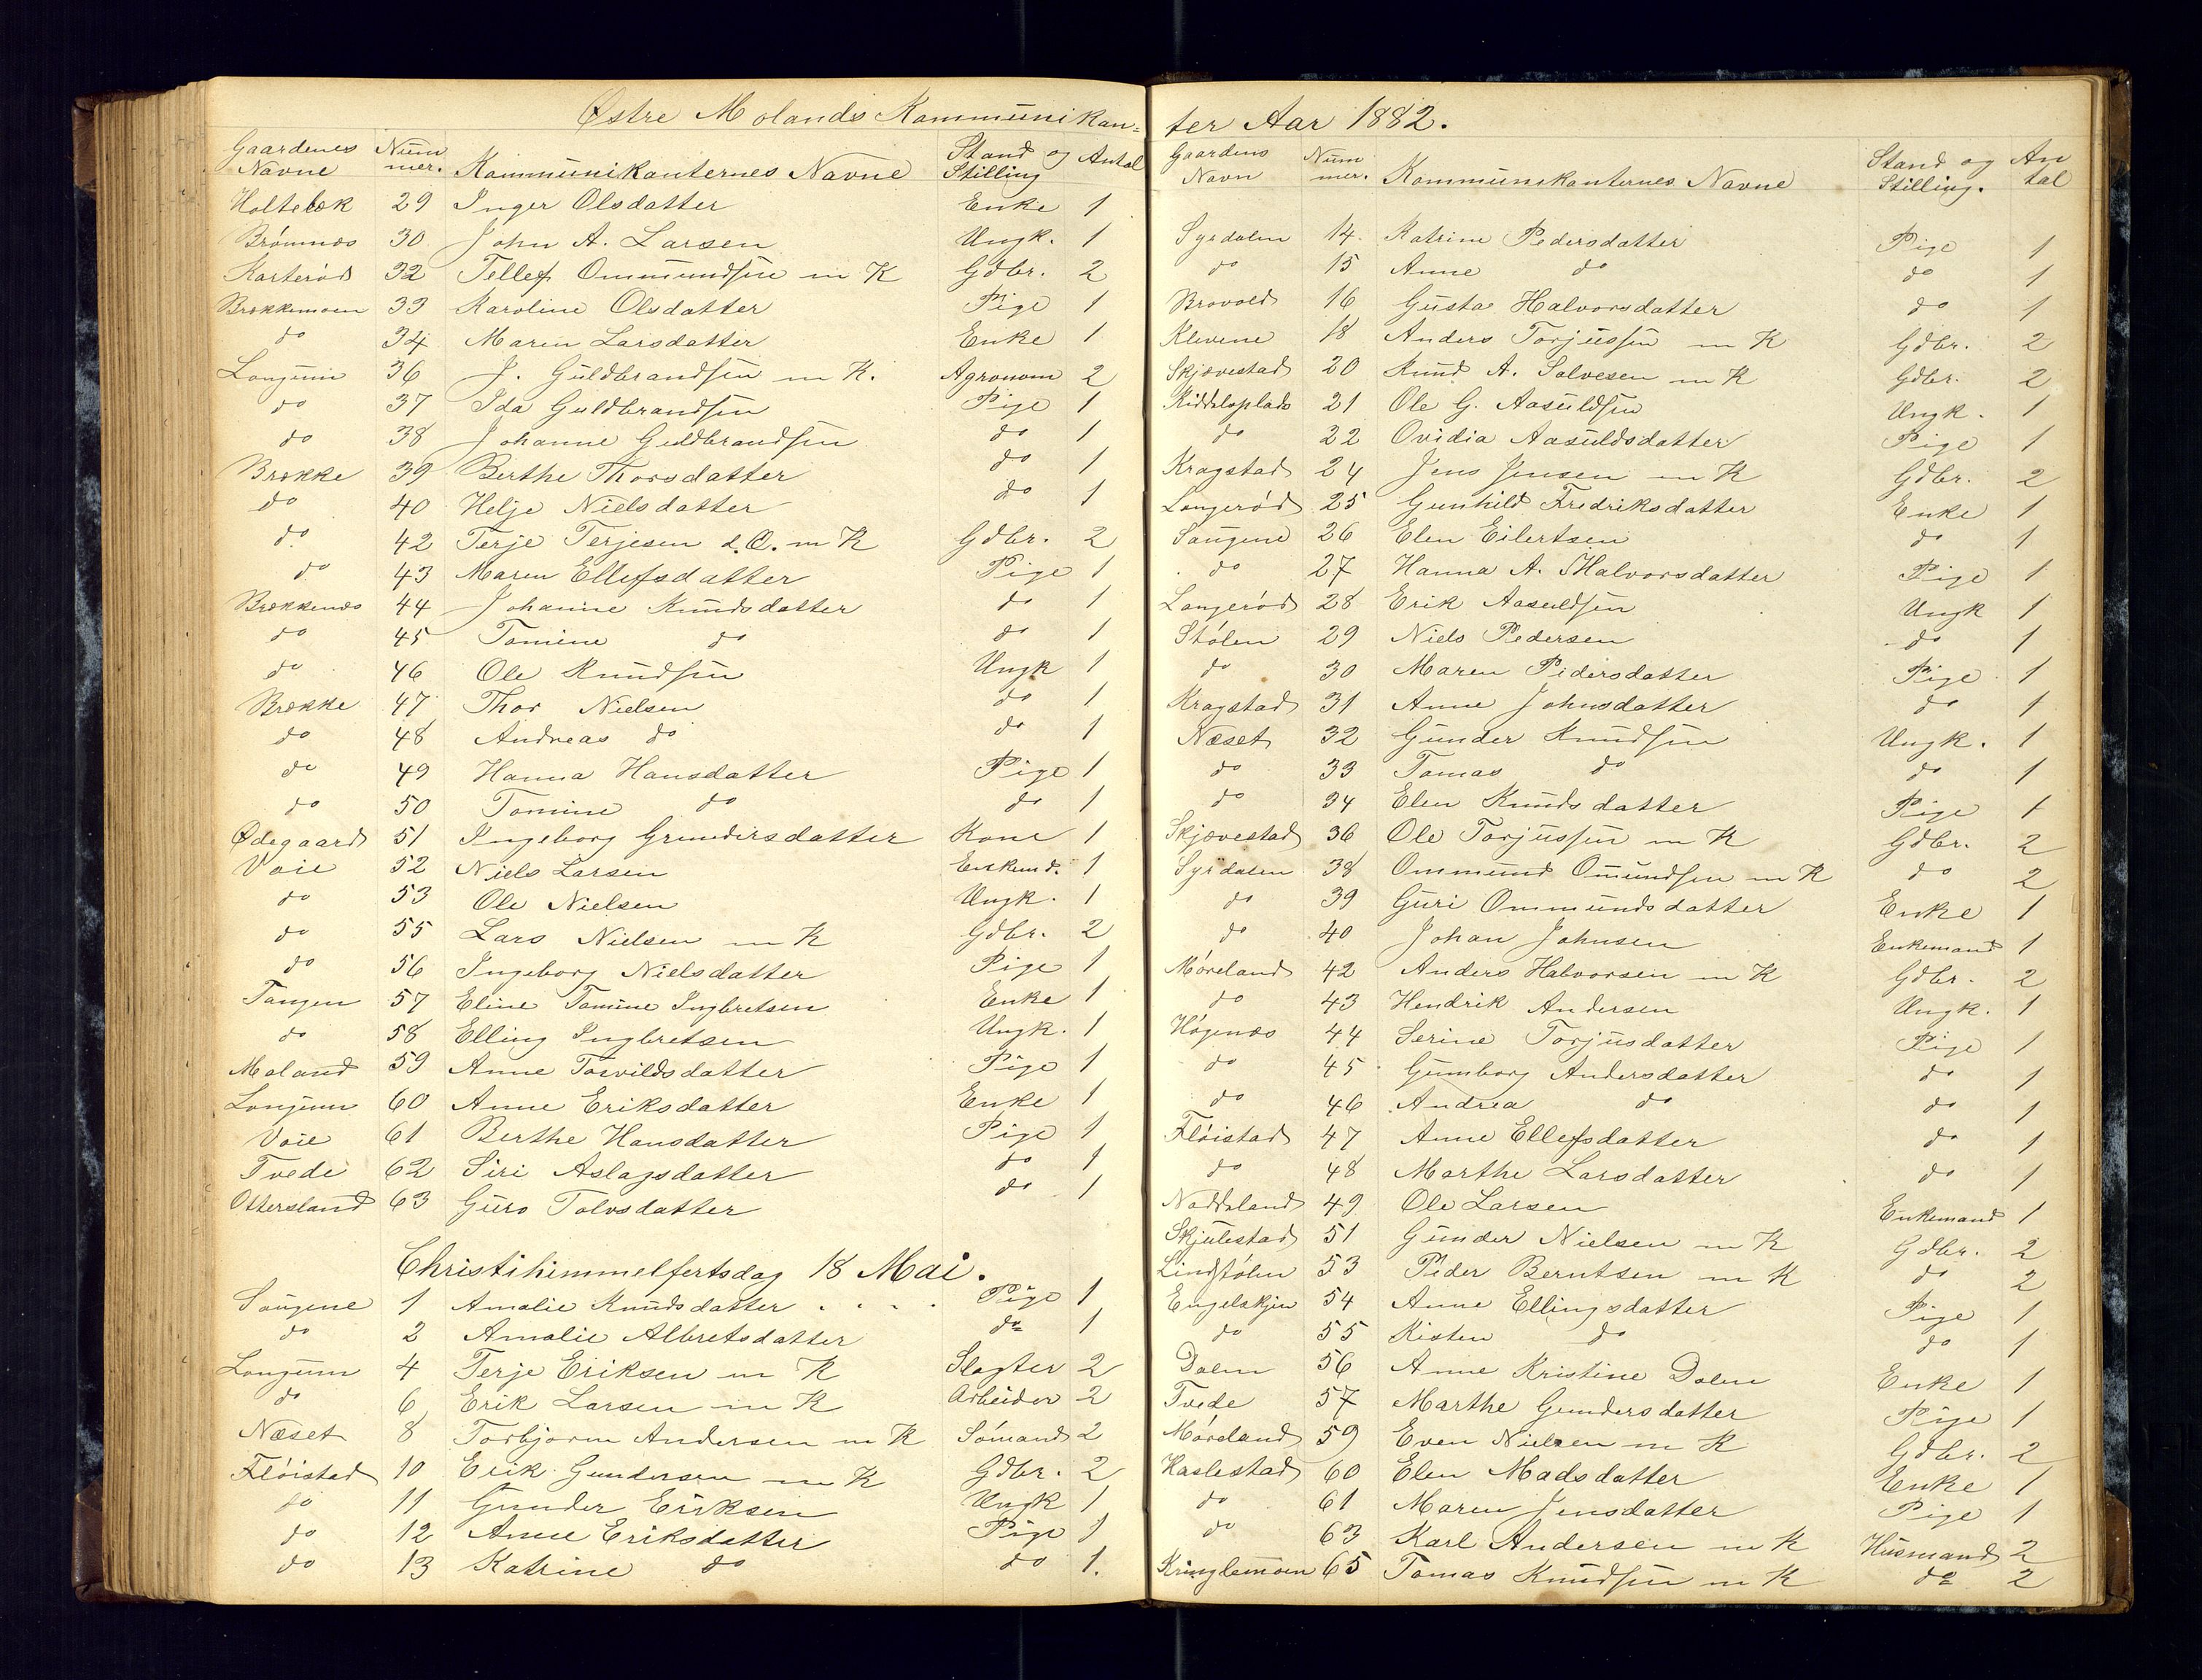 Østre Molands Kommunikan=
Gaardenes Navne Num mer. Kommunikanternes Navne Stand og Stilling Antal
Holtebæk 29 Inger Olsdatter Enke 1
Brømnæs 30 John A. Larsen Ungk. 1
Karterød 32 Tellef Ommundsen m K Gdbr. 2
Brækkemoen 33 Karoline Olsdatter Pige 1
do 34 Maren Larsdatter Enke 1
Longum 36 J. Guldbrandsen m K. Agronom 2
do 37 Ida Guldbrandsen Pige 1
do 38 Johanne Guldbrandsen do 1
Brække 39 Berthe Thorsdatter do 1
do 40 Helje Nielsdatter do 1
do 42 Terje Terjesen d. m K Gdbr. 2
do 43 Maren Ellefsdatter Pige 1
Brækkenæs 44 Johanne Knudsdatter do 1
do 45 Tomine do do 1
do 46 Ole Knudsen Ungk 1
Brække 47 Thor Nielsen do 1
do 48 Andreas do do 1
do 49 Hanna Hansdatter Pige 1
do 50 Tomine do do 1
Ødegaard 51 Ingeborg Grundersdatter Kone 1
Voie 52 Niels Larsen Enkemd. 1
do 53 Ole Nielsen Ungk. 1
do 55 Lars Nielsen m K Gdbr. 2
do 56 Ingeborg Nielsdatter Pige 1
Tangen 57 Eline Tomine Ingbretsen Enke 1
do 58 Elling Ingbretsen Ungk. 1
Moland 59 Anne Tosvildsdatter Pige 1
Longum 60 Anne Eriksdatter Enke 1
Voie 61 Berthe Hansdatter Pige 1
Tvede 62 Siri Aslagsdatter do 1
Ottersland 63 Guro Tolvsdatter do 1
Christihimmelfertsdag 18 Mai.
Songene 1 Amalie Knudsdatter . . . . Pige 1
do 2 Amalie Albretsdatter do 1
Longum 4 Terje Eriksen m K Slagter 2
do 6 Erik Larsen m K Arbeider 2
Næset 8 Torbjørn Andersen m K Sømand 2
Fløistad 10 Erik Gundersen m K Gdbr. 2
do 11 Gunder Eriksen Ungk 1
do 12 Anne Eriksdatter Pige 1
do 13 Katrine do do 1.
ter Aar 1882.
Gaardens Navn Num mer. Kommunikanternes Navne Stand og Stilling. An tal
Syrdalen 14. Katrine Pedersdatter Pige 1
do 15 Anne do do 1
Brovold 16 Gusta Halvorsdatter do 1
Klevene 18 Anders Torjussen m K Gdbr. 2
Skjævestad 20 Knud A. Salvesen m K Gdbr. 2
21 Ole G. Aasuldsen Ungk. 1
do 22 Ovidia Aasuldsdatter Pige 1
Kragstad 24 Jens Jensen m K Gdbr. 2
Longerød 25 Gunhild Fredriksdatter Enke 1
Songene 26 Elen Eilertsen do 1
do 27 Hanna A. Halvorsdatter Pige 1
Longerød 28 Erik Aasuldsen Ungk 1
Stølen 29 Niels Pedersen do 1
do 30 Maren Pedersdatter Pige 1
Kragstad 31 Anne Johnsdatter do 1
Næset 32 Gunder Knudsen Ungk. 1
do 33 Tomas do do 1
do 34 Elen Knudsdatter Pige 1
Skjævestad 36 Ole Torjussen m K Gdbr. 2
Syrdalen 38 Ommund Omundsen m K do 2
do 39 Guri Ommundsdatter Enke 1
do 40 Johan Johnsen Enkemand 1
Møreland 42 Anders Halvorsen m K Gdbr. 2
do 43 Hendrik Andersen Ungk. 1
Høgenæs 44 Serine Torjusdatter Pige 1
do 45 Gunborg Andersdatter do 1
do 46 Andrea do do 1
Fløistad 47 Anne Ellefsdatter do 1
do 48 Marthe Larsdatter do 1
Noddeland 49 Ole Larsen Enkemand 1
Skjulestad 51 Gunder Nielsen m K Gdbr. 2
Lindstølen 53 Peder Berntsen m K do 2
Engelskjen 54 Anne Ellingsdatter Pige 1
do 55 Kisten do do 1
Dalen 56 Anne Kristine Dalen Enke 1
Tvede 57 Marthe Gundersdatter Pige 1
Møreland 59 Even Nielsen m K Gdbr. 2
Haslestad 60 Elen Madsdatter Enke 1
do 61 Maren Jensdatter Pige 1
do 63 Karl Andersen m K Husmand 2
Kringlemoen 65 Tomas Knudsen m K do 2